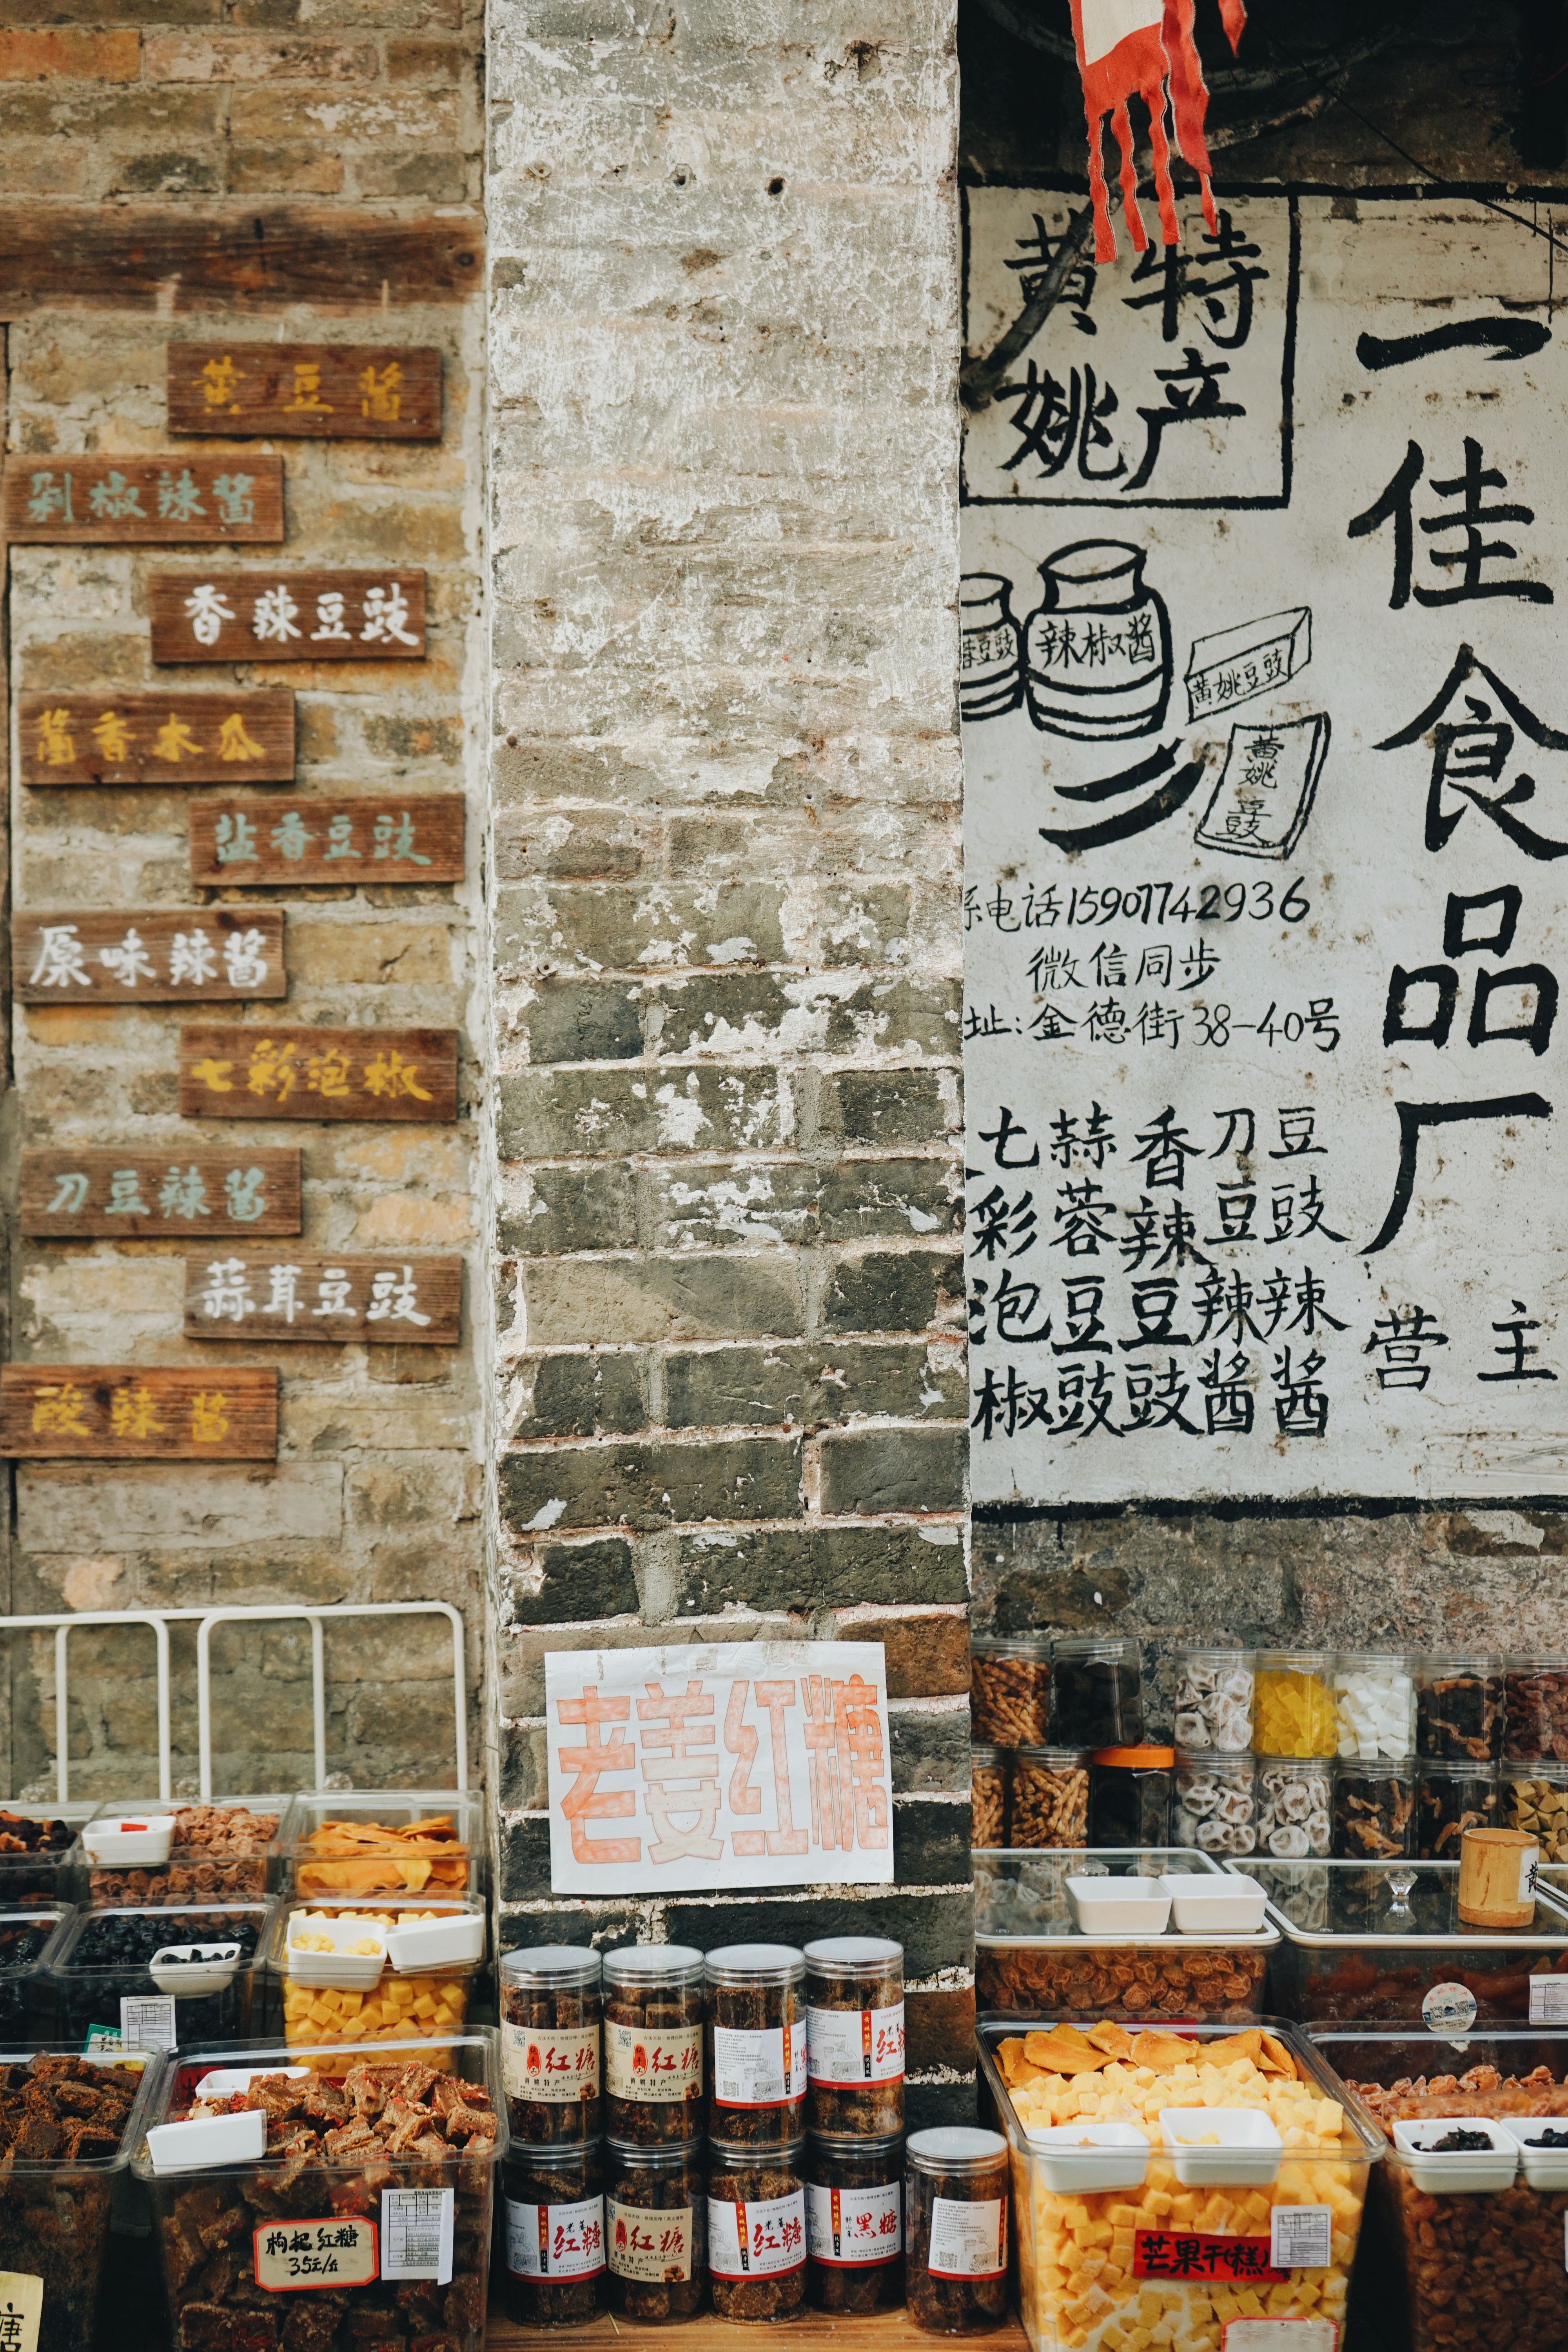 黄豆酱
剁椒辣酱
香辣豆豉
酱香木瓜
盐香豆豉
原味辣酱
七彩泡椒
刀豆辣酱
蒜茸豆豉
酸辣酱
特产
黄姚
一佳食品厂
辣椒酱
豆豉
黄姚豆豉
黄姚豆豉
系电话15907742936
微信同步
址:金德街38-40号
主营
豆豉辣酱
刀豆辣酱
香辣豆豉
蒜蓉豆豉
七彩泡椒
老姜红糖
红糖
黄姚特产
红糖
黄姚特产
红糖
老姜
红糖
红糖
黑糖
枸杞红糖
35元/斤
芒果干(糕)